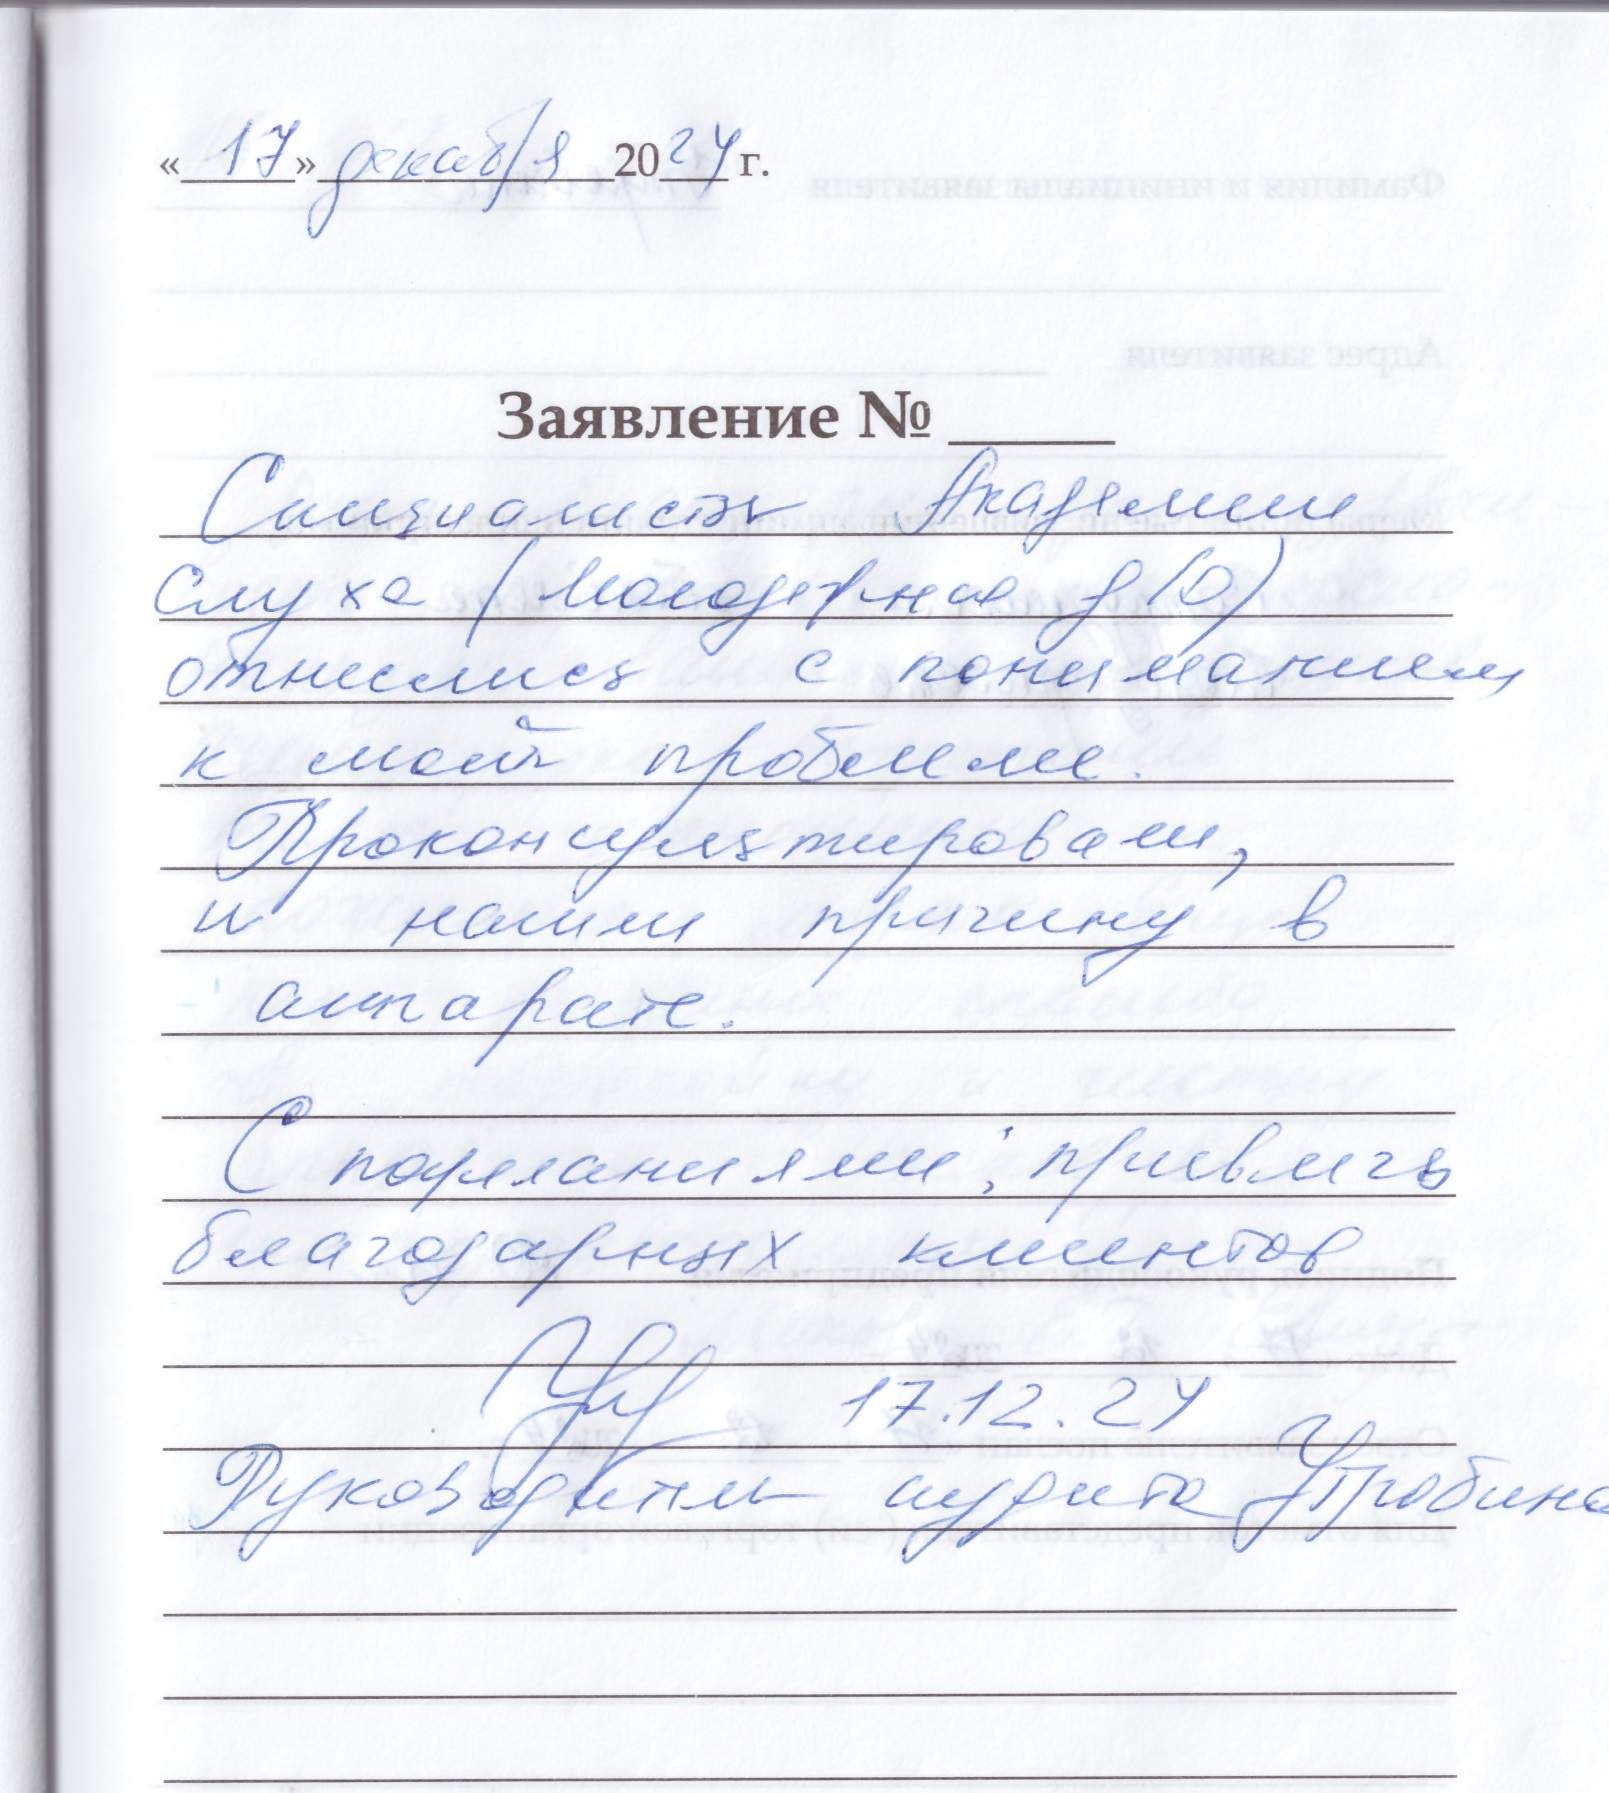 «17» декабря 2024 г.
Заявление №
Специалисты Академии
Слуха (Молодежная
отнеслись с пониманием
к моей проблеме.
Проконсультировали,
и нашли причину в
аппарате.
С пожеланиями: привлечь
благодарных клиентов
17.12.24
Руководитель аудита Утробина